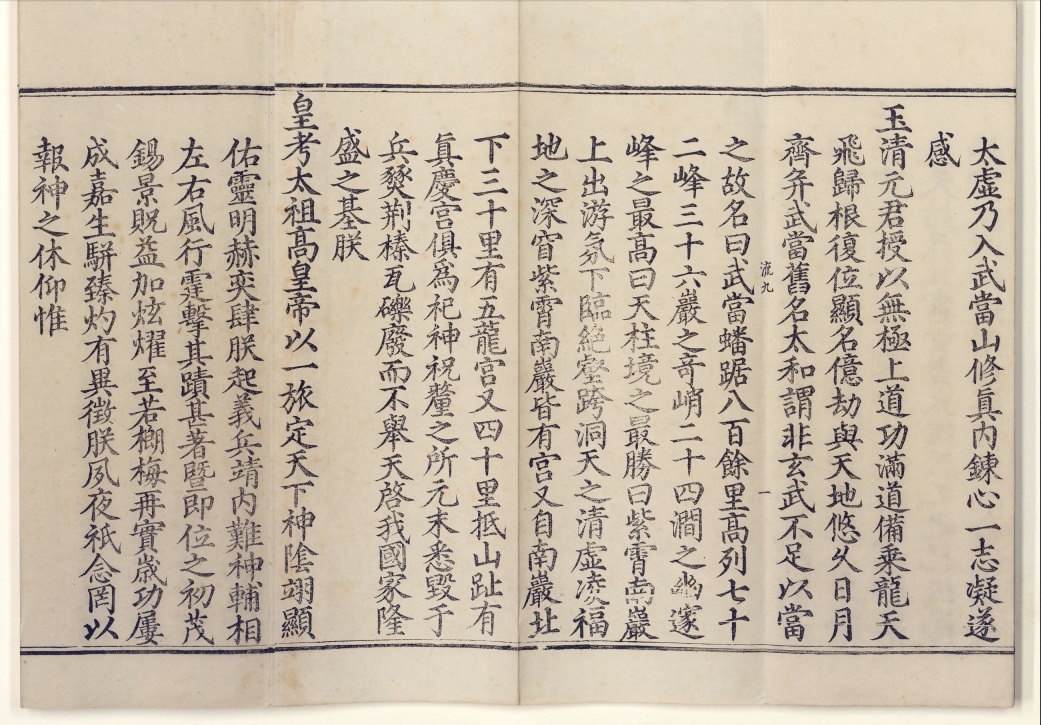 太虚乃入武當山修真内鍊心一志凝遂
感
玉清元君授以無極上道功滿道備乗龍天
飛歸根復位顯名億劫與天地悠久日月
齊并武當舊名太和謂非玄武不足以當
流九
一
之故名曰武當蟠踞八百餘里高列七十
二峰三十六巖之竒峭二十四澗之幽邃
峰之最高曰天柱境之最勝曰紫霄南巖
上出游氛下臨絶壑跨洞天之清虚凌福
地之深窅紫霄南巖皆有宫又自南巖北
下三十里有五龍宫又四十里抵山趾有
真慶宫俱為祀神祝釐之所元末悉毁于
兵燹荆榛瓦礫廢而不舉天啓我國家隆
盛之基朕
皇考太祖高皇帝以一旅定天下神陰翊顯
佑靈明赫奕肆朕起義兵靖内難神輔相
左右風行霆擊其蹟甚著暨即位之初茂
錫景貺益加炫燿至若榔梅再實嵗功屢
成嘉生駢臻灼有異徴朕夙夜祇念罔以
報神之休仰惟